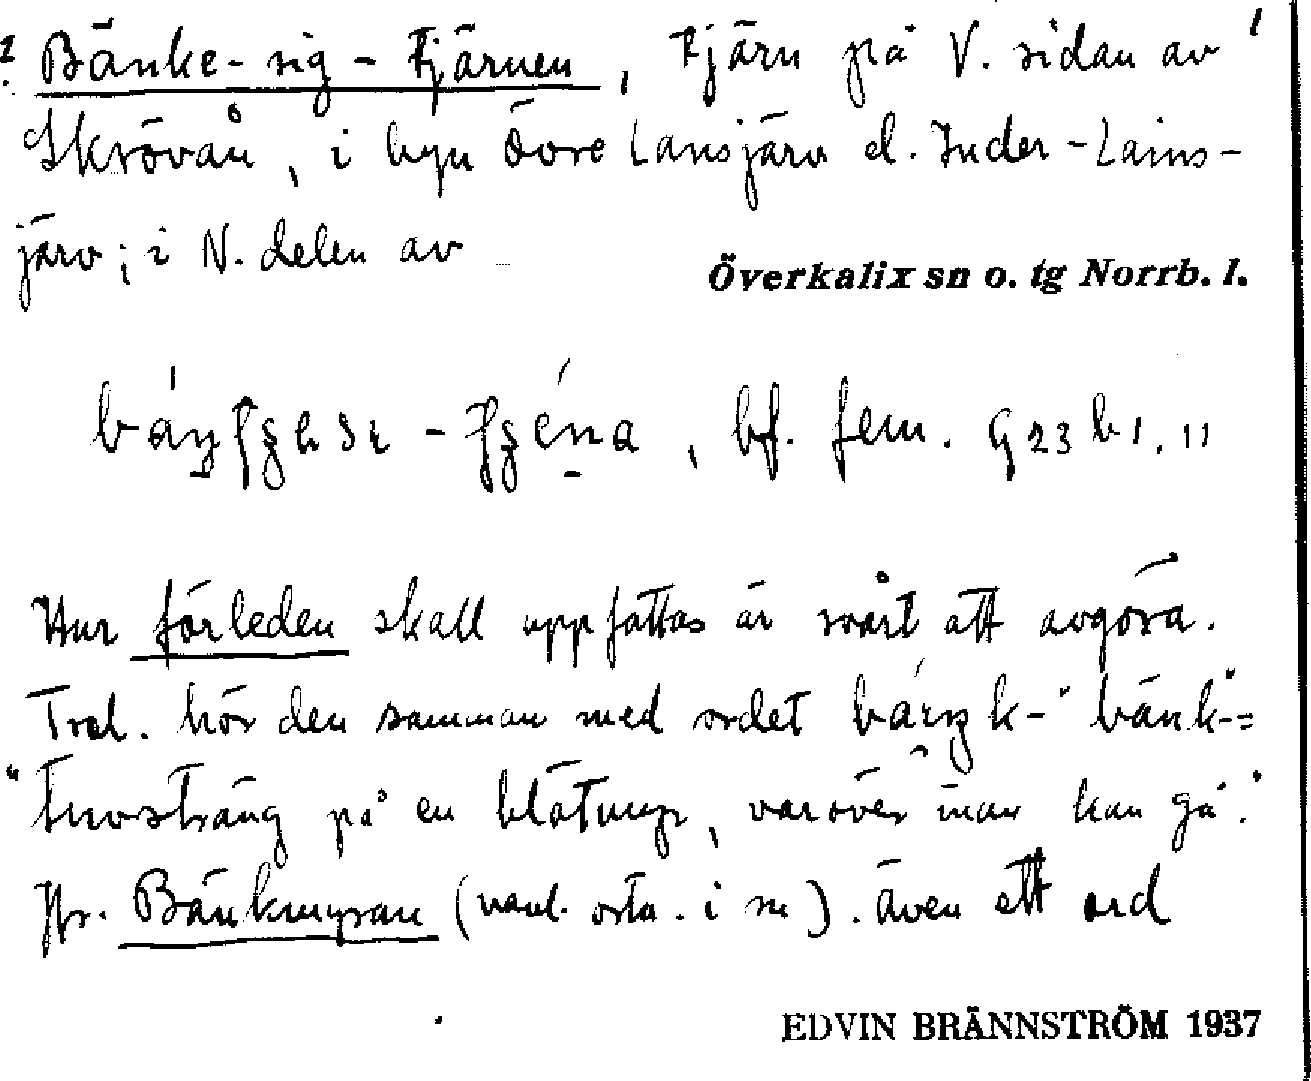 ? Bänke-sig-tjärnen, tjärn på V. sidan av
Skrövån, i byn Övre Lansjärv el. Inder-Lains-
järv; i N. delen av
Överkalix sn o. tg Norrb. l.
bf. fem. G 23 b 1. 11
Hur förleden skall uppfattas är svårt att avgöra.
Trol. hör den samman med ordet "bänk" =
"tuvsträng på en blötmyr, varöver man kan gå".
Jfr. Bänkmyran (vanl. ortn. i sn). även ett ord
EDVIN BRÄNNSTRÖM 1937